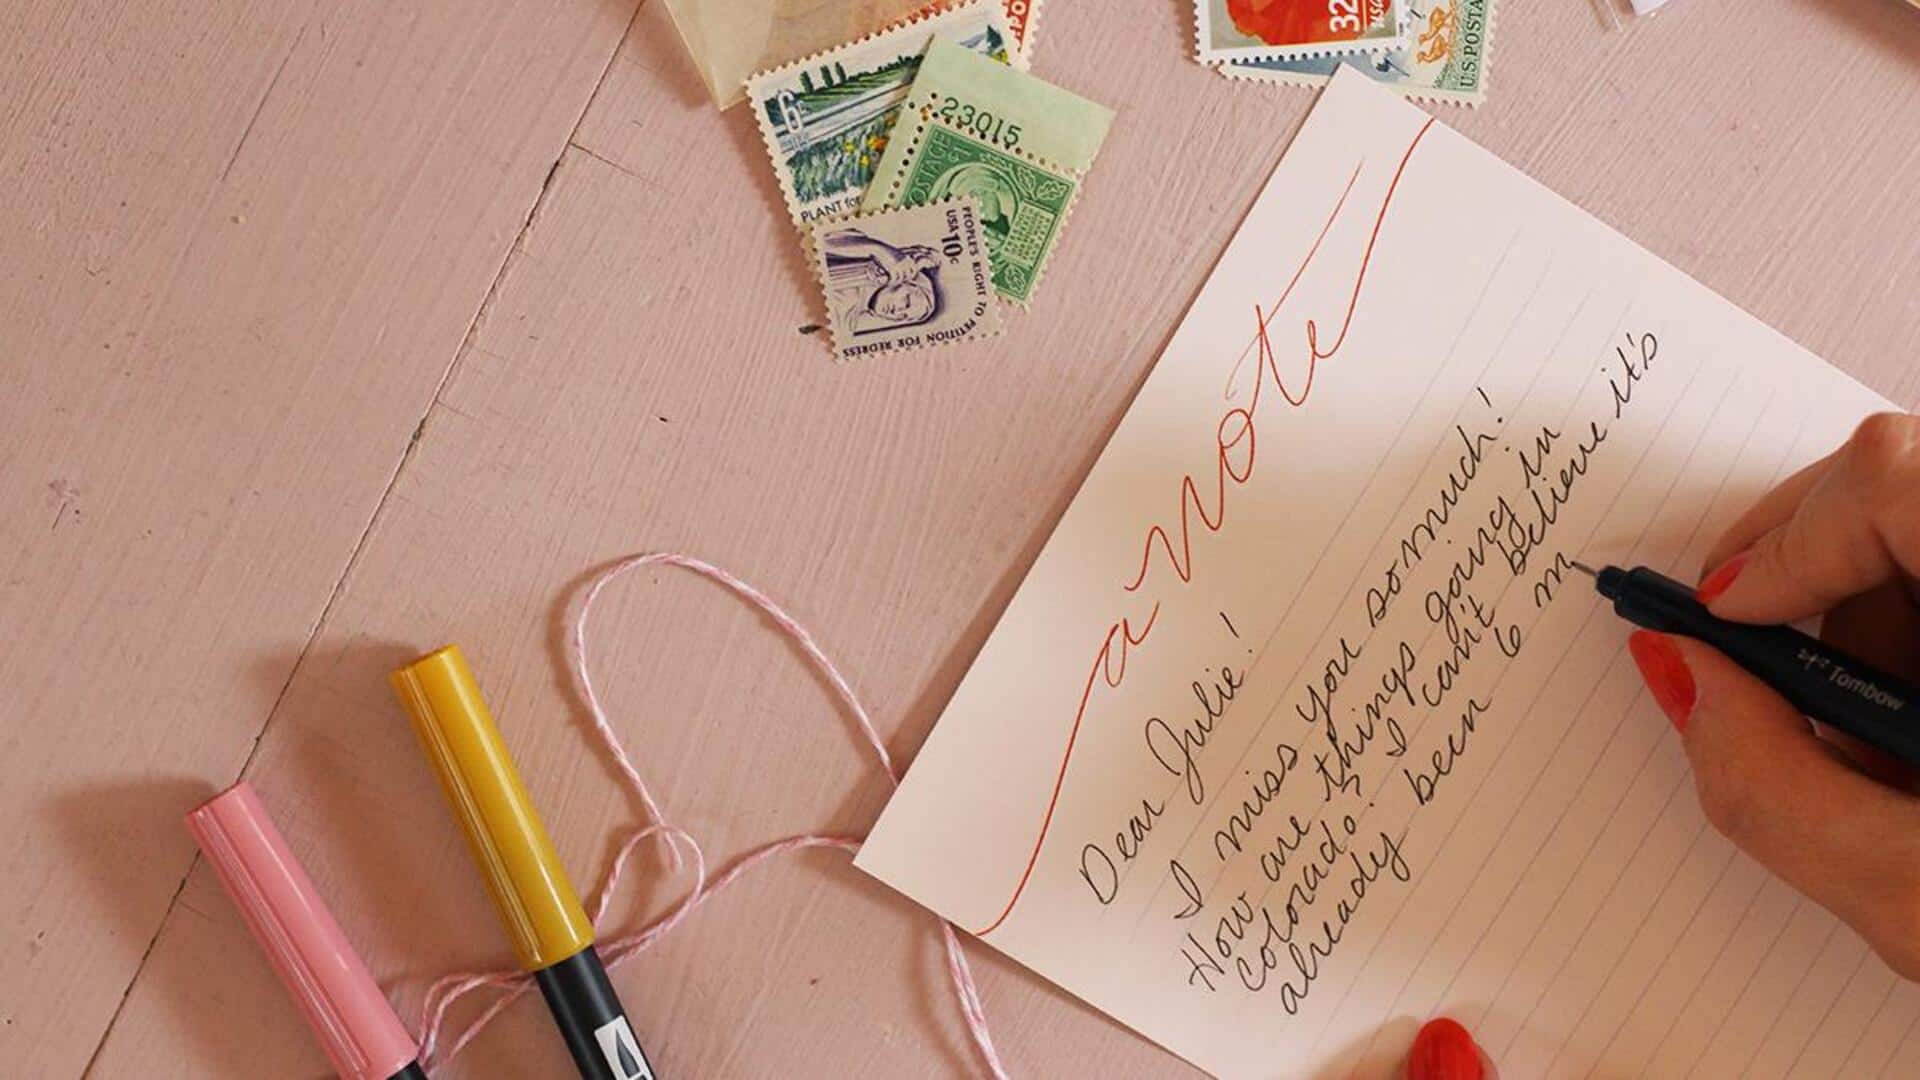 32
U.S. POSTA
6¢
PLANT for
23015
POSTAGE
USA 10c
PEOPLE'S RIGHT TO PETITION FOR REDRESS
a note
Dear Julie!
I miss you so much!
How are things going in
Colorado? I can't believe it's
already been 6 m
Tombow